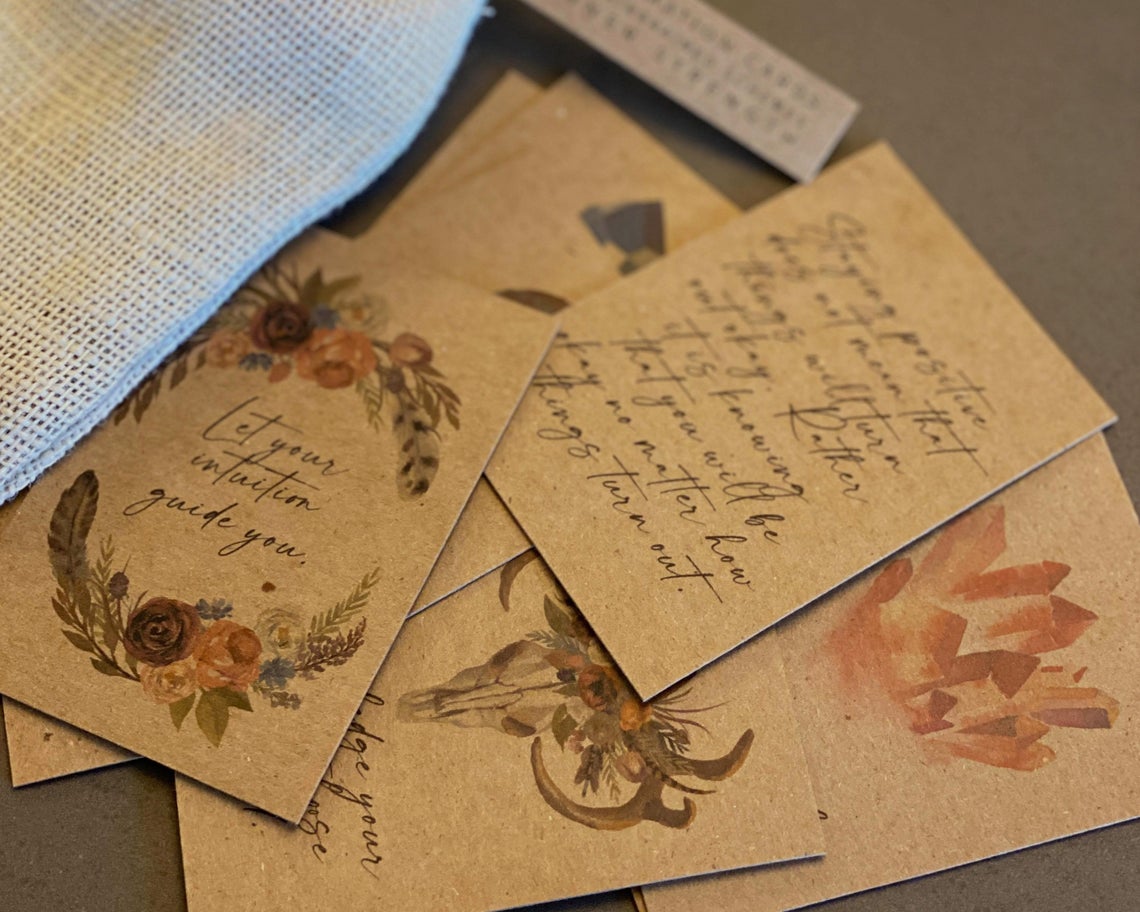 Let your
intuition
guide you.
Staying positive
does not mean that
things will turn
out okay. Rather
it is knowing
that you will be
okay no matter how
things turn out.
your